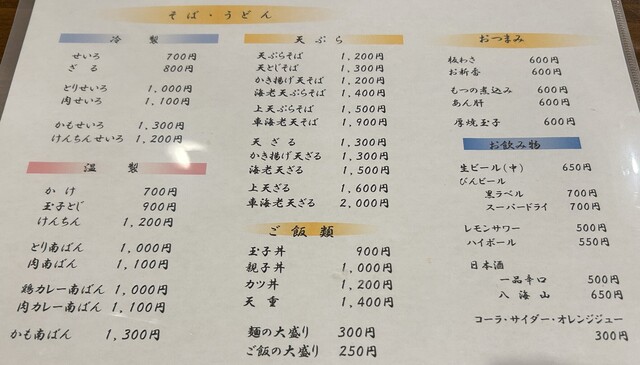 そば・うどん
冷製
せいろ 700円
ざる 800円
とりせいろ 1,000円
肉せいろ 1,100円
かもせいろ 1,300円
けんちんせいろ 1,200円
温製
かけ 700円
玉子とじ 900円
けんちん 1,200円
とり南ばん 1,000円
肉南ばん 1,100円
鶏カレー南ばん 1,000円
肉カレー南ばん 1,100円
かも南ばん 1,300円
天ぷら
天ぷらそば 1,200円
天とじそば 1,300円
かき揚げ天そば 1,200円
海老天ぷらそば 1,400円
上天ぷらそば 1,500円
車海老天そば 1,900円
天ざる 1,300円
かき揚げ天ざる 1,300円
海老天ざる 1,500円
上天ざる 1,600円
車海老天ざる 2,000円
ご飯類
玉子丼 900円
親子丼 1,000円
カツ丼 1,200円
天重 1,400円
麺の大盛り 300円
ご飯の大盛り 250円
おつまみ
板わさ 600円
お新香 600円
もつの煮込み 600円
あん肝 600円
厚焼玉子 600円
お飲み物
生ビール(中) 650円
びんビール
黒ラベル 700円
スーパードライ 700円
レモンサワー 500円
ハイボール 550円
日本酒
一品辛口 500円
八海山 650円
コーラ・サイダー・オレンジジュー
300円